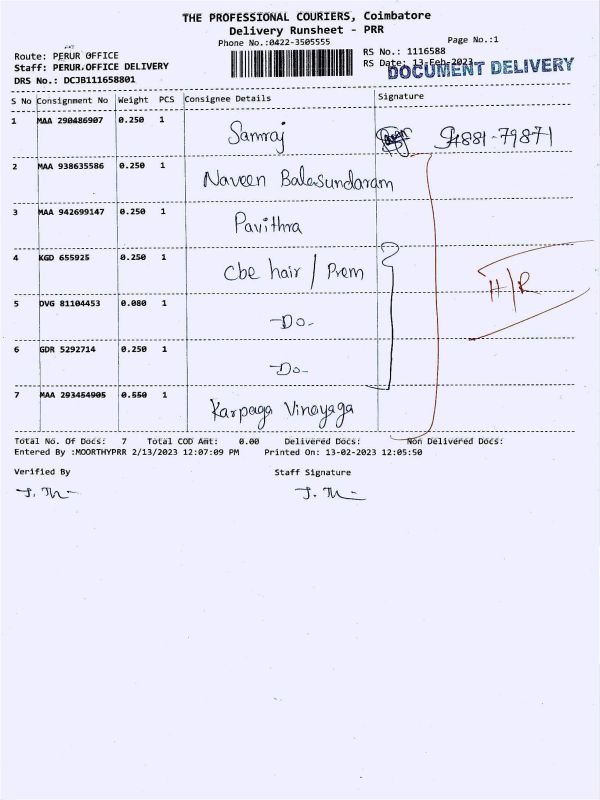 THE PROFESSIONAL COURIERS, Coimbatore
Delivery Runsheet - PRR
Phone No.:0422-3505555
Page No.:1
Route: PERUR OFFICE
RS No.: 1116588
Staff: PERUR.OFFICE DELIVERY
RS Date: 13-Feb-2023
DOCUMENT DELIVERY
DRS No.: DCJB111658801
S No Consignment No Weight PCS Consignee Details Signature
1 MAA 290486907 0.250 1 Samraj 94881-79871
2 MAA 938635586 0.250 1 Naveen Balasundaram
3 MAA 942699147 0.250 1 Pavithra
4 KGD 655925 0.250 1 Cbe hair / Prem H/R
5 DVG 81104453 0.080 1 -Do-
6 GDR 5292714 0.250 1 -Do-
7 MAA 293454905 0.550 1 Karpaga Vinayaga
Total No. Of Docs: 7 Total COD Amt: 0.00 Delivered Docs: Non Delivered Docs:
Entered By :MOORTHYPRR 2/13/2023 12:07:09 PM Printed On: 13-02-2023 12:05:50
Verified By Staff Signature